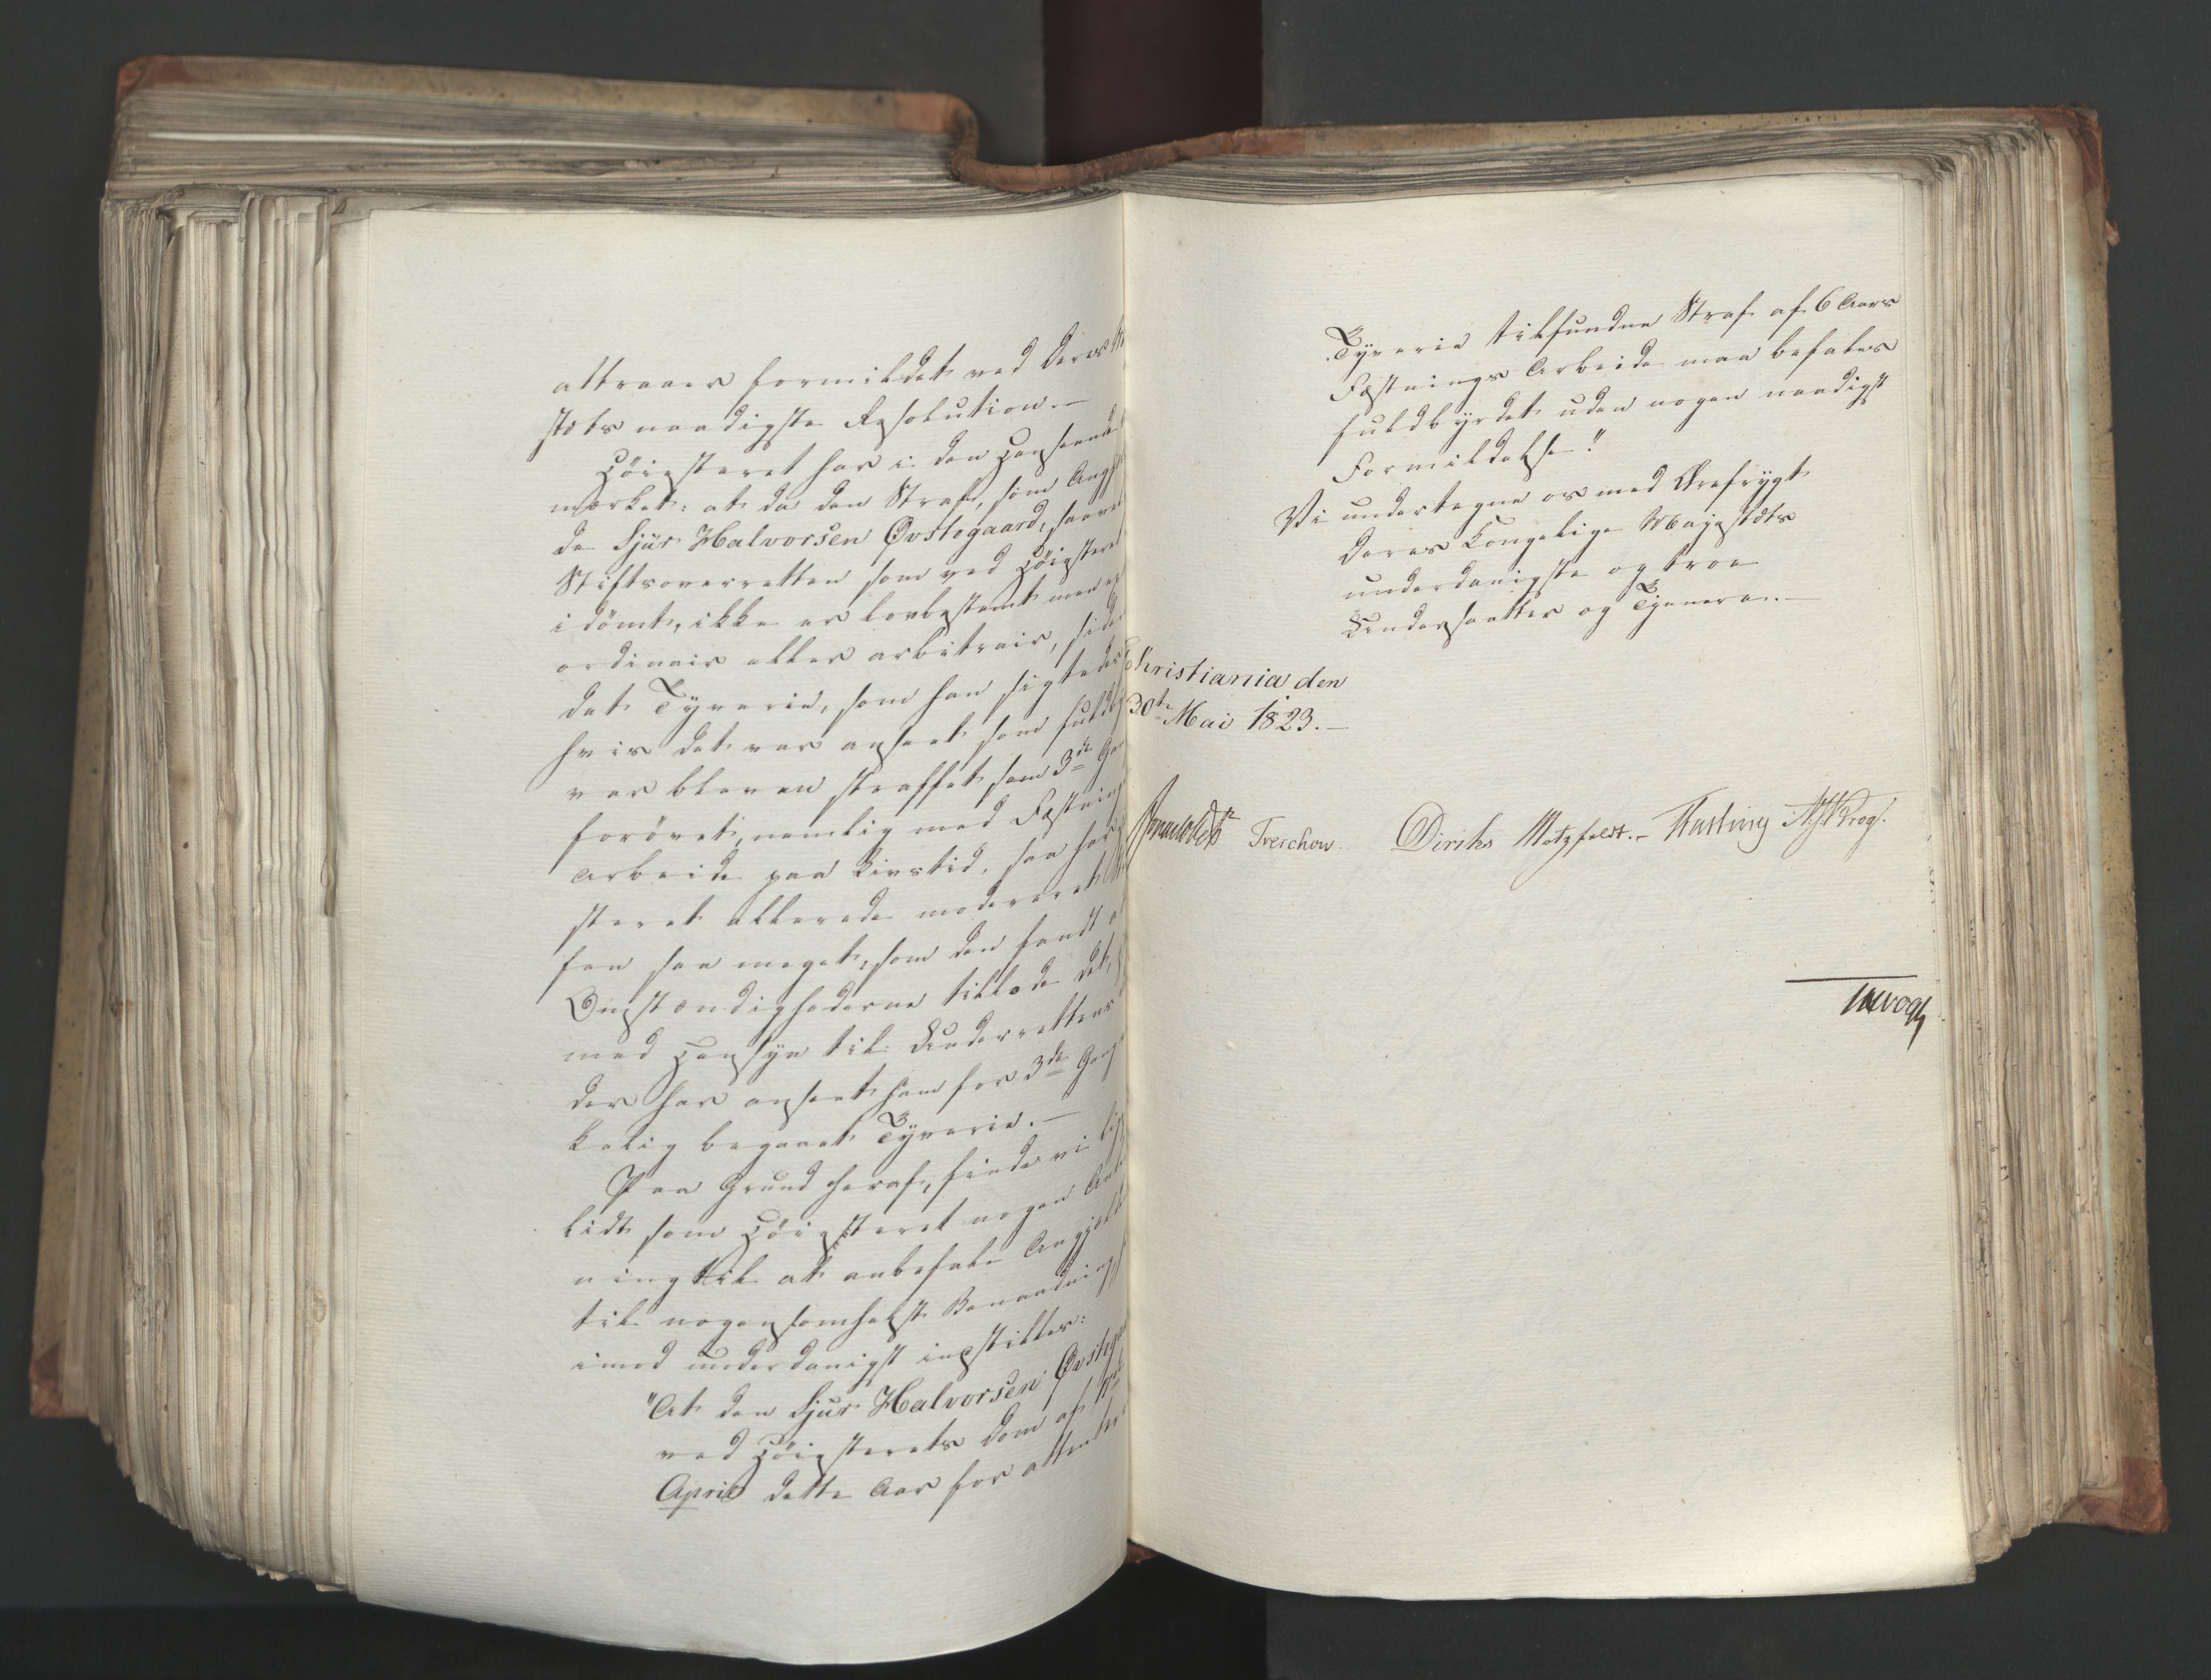 attraaer formildet ved Deres
stæts naadigste Resolution.—
Höiesteret har i den Henseende
mærket: at da den Straf, som
de Sjur Halvorsen Qvstegaard, saavel
Stiftsoverretten som ved Höiesteret
idömt, ikke er lovbestemt men
ordinair eller arbitrair, siden
det Tyverie, som han sigtedes
hvis det var anseet som
var bleven straffet som 3de
forövet, nemlig med Fæstnings
Arbeide paa Livstid, saa har
steret allerede modereret
fen saa meget, som den fandt at
Omstændighederne tillode det,
med Hensyn til Underrettens
der har anseet ham for 3de Gang
kelig begaaet Tyverie.—
Paa Grund heraf, finde vi
lidt som Höiesteret nogen
ning til at anbefale
til nogensomhelst Benaadning
imod underdanigst indstiller:
"At den Sjur Halvorsen
ved Höiesterets Dom af
April dette Aar for attenteret
Tyverie tilfundne Straf af 6 Aars
Fæstnings Arbeide maa befales
fuldbyrdet uden nogen naadigst
Formildelse."
Vi undertegne os med Ærefrygt
Deres Kongelige Majestæts
underdanigste og troe
Undersaatter og Tjenere.—
Christiania den
30te Mai 1823.—
Treschow. Diriks Motzfeldt.— Fasting